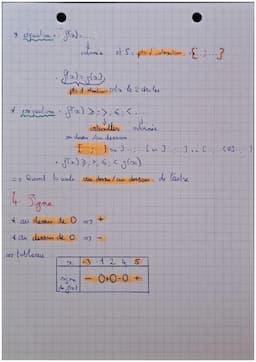 * équation = f(x) = ...
donnée et S = pts d'intersection { ; ... }
. f(x) = g(x)
pts d'intersection entre les 2 courbes
* inéquation = f(x) ≥, >, ≤, < ...
ordonnée
au dessus / au dessous
. f(x) ≥, >, ≤, < g(x)
=> Quand la courbe au dessus / au dessous de l'autre
4. Signe
* au dessus de 0 => +
* au dessous de 0 => -
=> tableau
x -3 1 2 4 5
signe de f(x) - 0 + 0 - 0 +